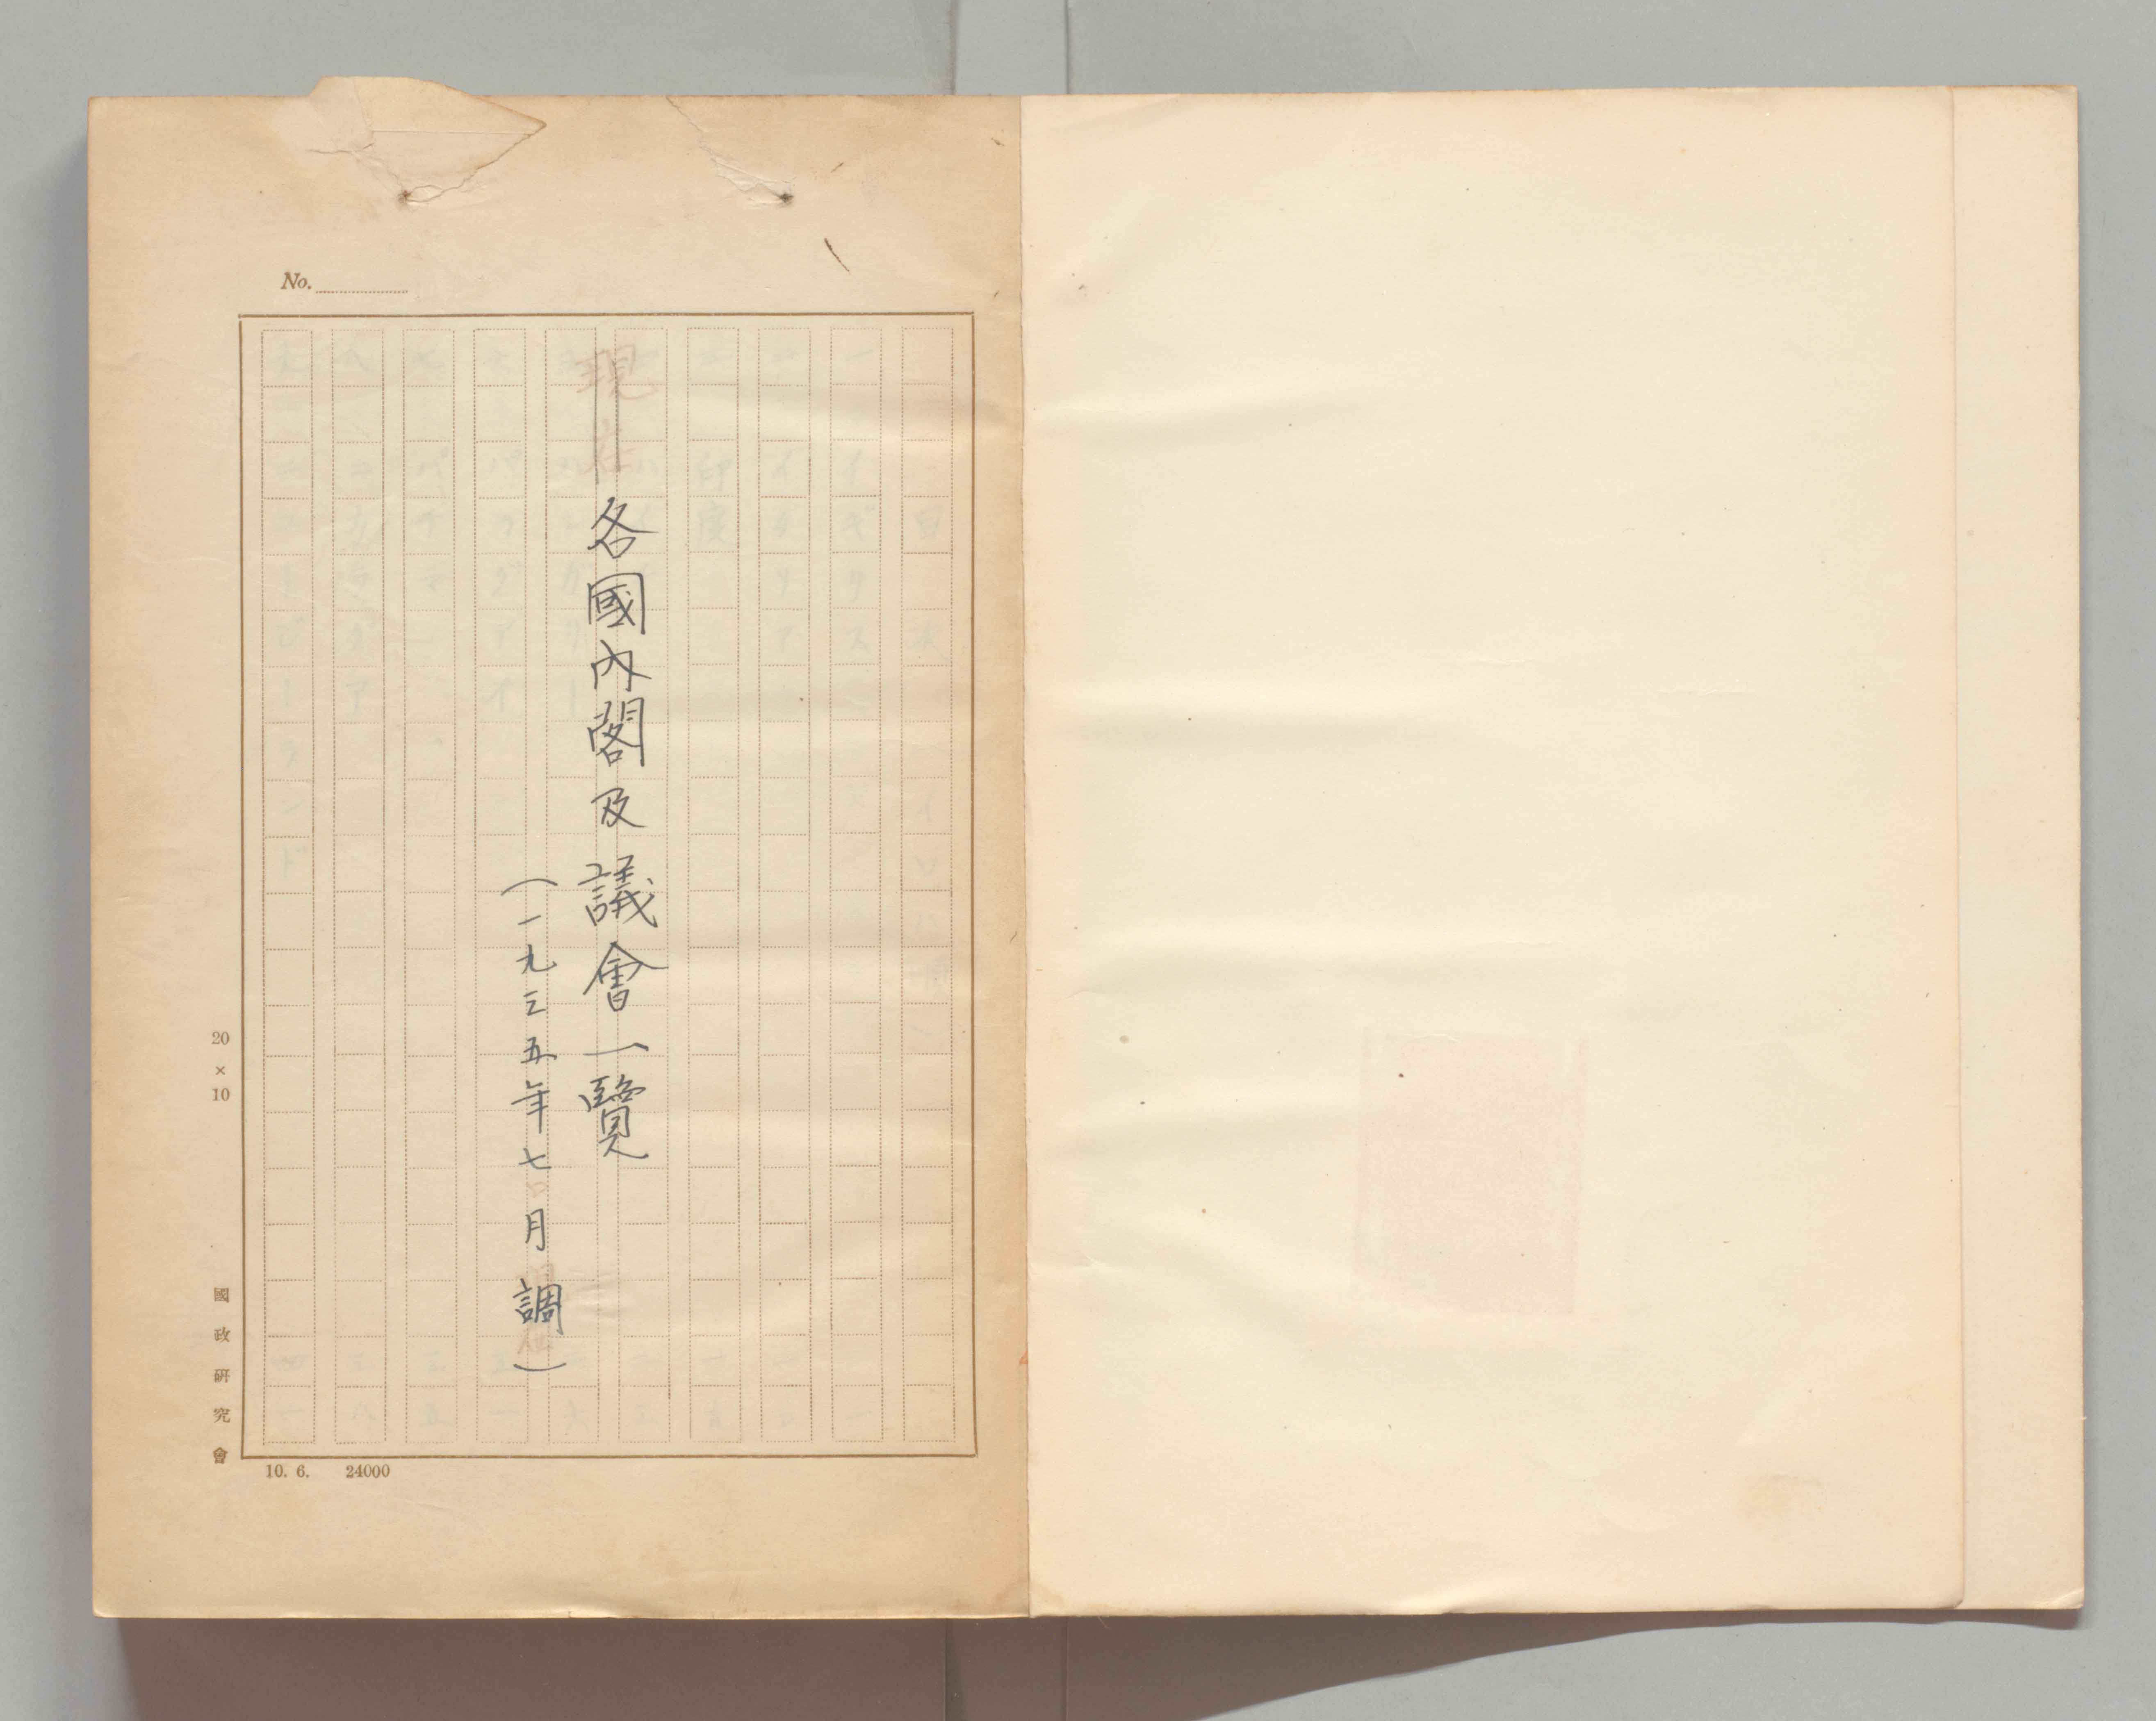 No.
各國内閣及議會一覽
（一九三五年七月調）
20×10
國政研究會
10. 6. 24000